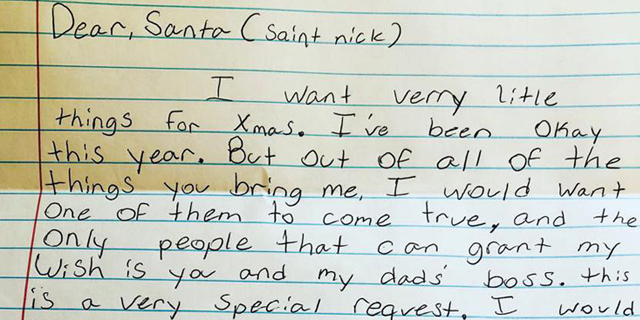 Dear, Santa (Saint nick)
I want verry litle
things for Xmas. I've been Okay
this year. But out of all of the
things you bring me, I would want
One of them to come true, and the
Only people that can grant my
Wish is you and my dads' boss. this
is a very special request. I would